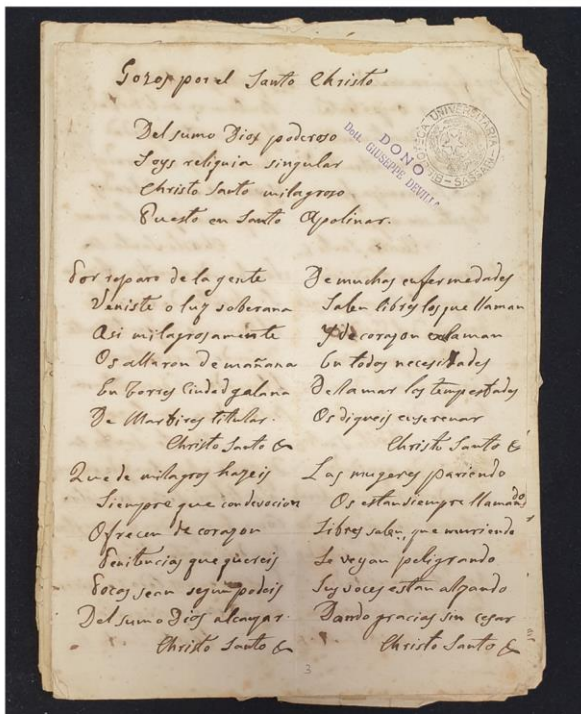 Gozos por el Santo Christo
Del sumo Dios poderoso
Soys reliquia singular
Christo Santo milagroso
Puesto en Santo Apolinar.
DONO
Dott. GIUSEPPE DEVILLA
BIBLIOTECA UNIVERSITARIA - SASSARI -
Por reparo de la gente
Veniste o luz soberana
Asi milagrosamente
Os allaron de mañana
En Torres Ciudad galana
De Martires titular.
Christo Santo &
Que de milagros hazeis
Siempre que con devocion
Ofrecen de corazon
Penitencias que quereis
Pocas sean segun podeis
Del sumo Dios alcanzar.
Christo Santo &
De muchas enfermedades
Salen libres los que llaman
Y de corazon claman
En todas necesidades
De la mar las tempestades
Os digneis enserenar
Christo Santo &
Las mugeres pariendo
Os estan siempre llamando
Libres salen, que muriendo
Se veyan peligrando
Sus voces estan alzando
Dando gracias sin cesar
Christo Santo &
3